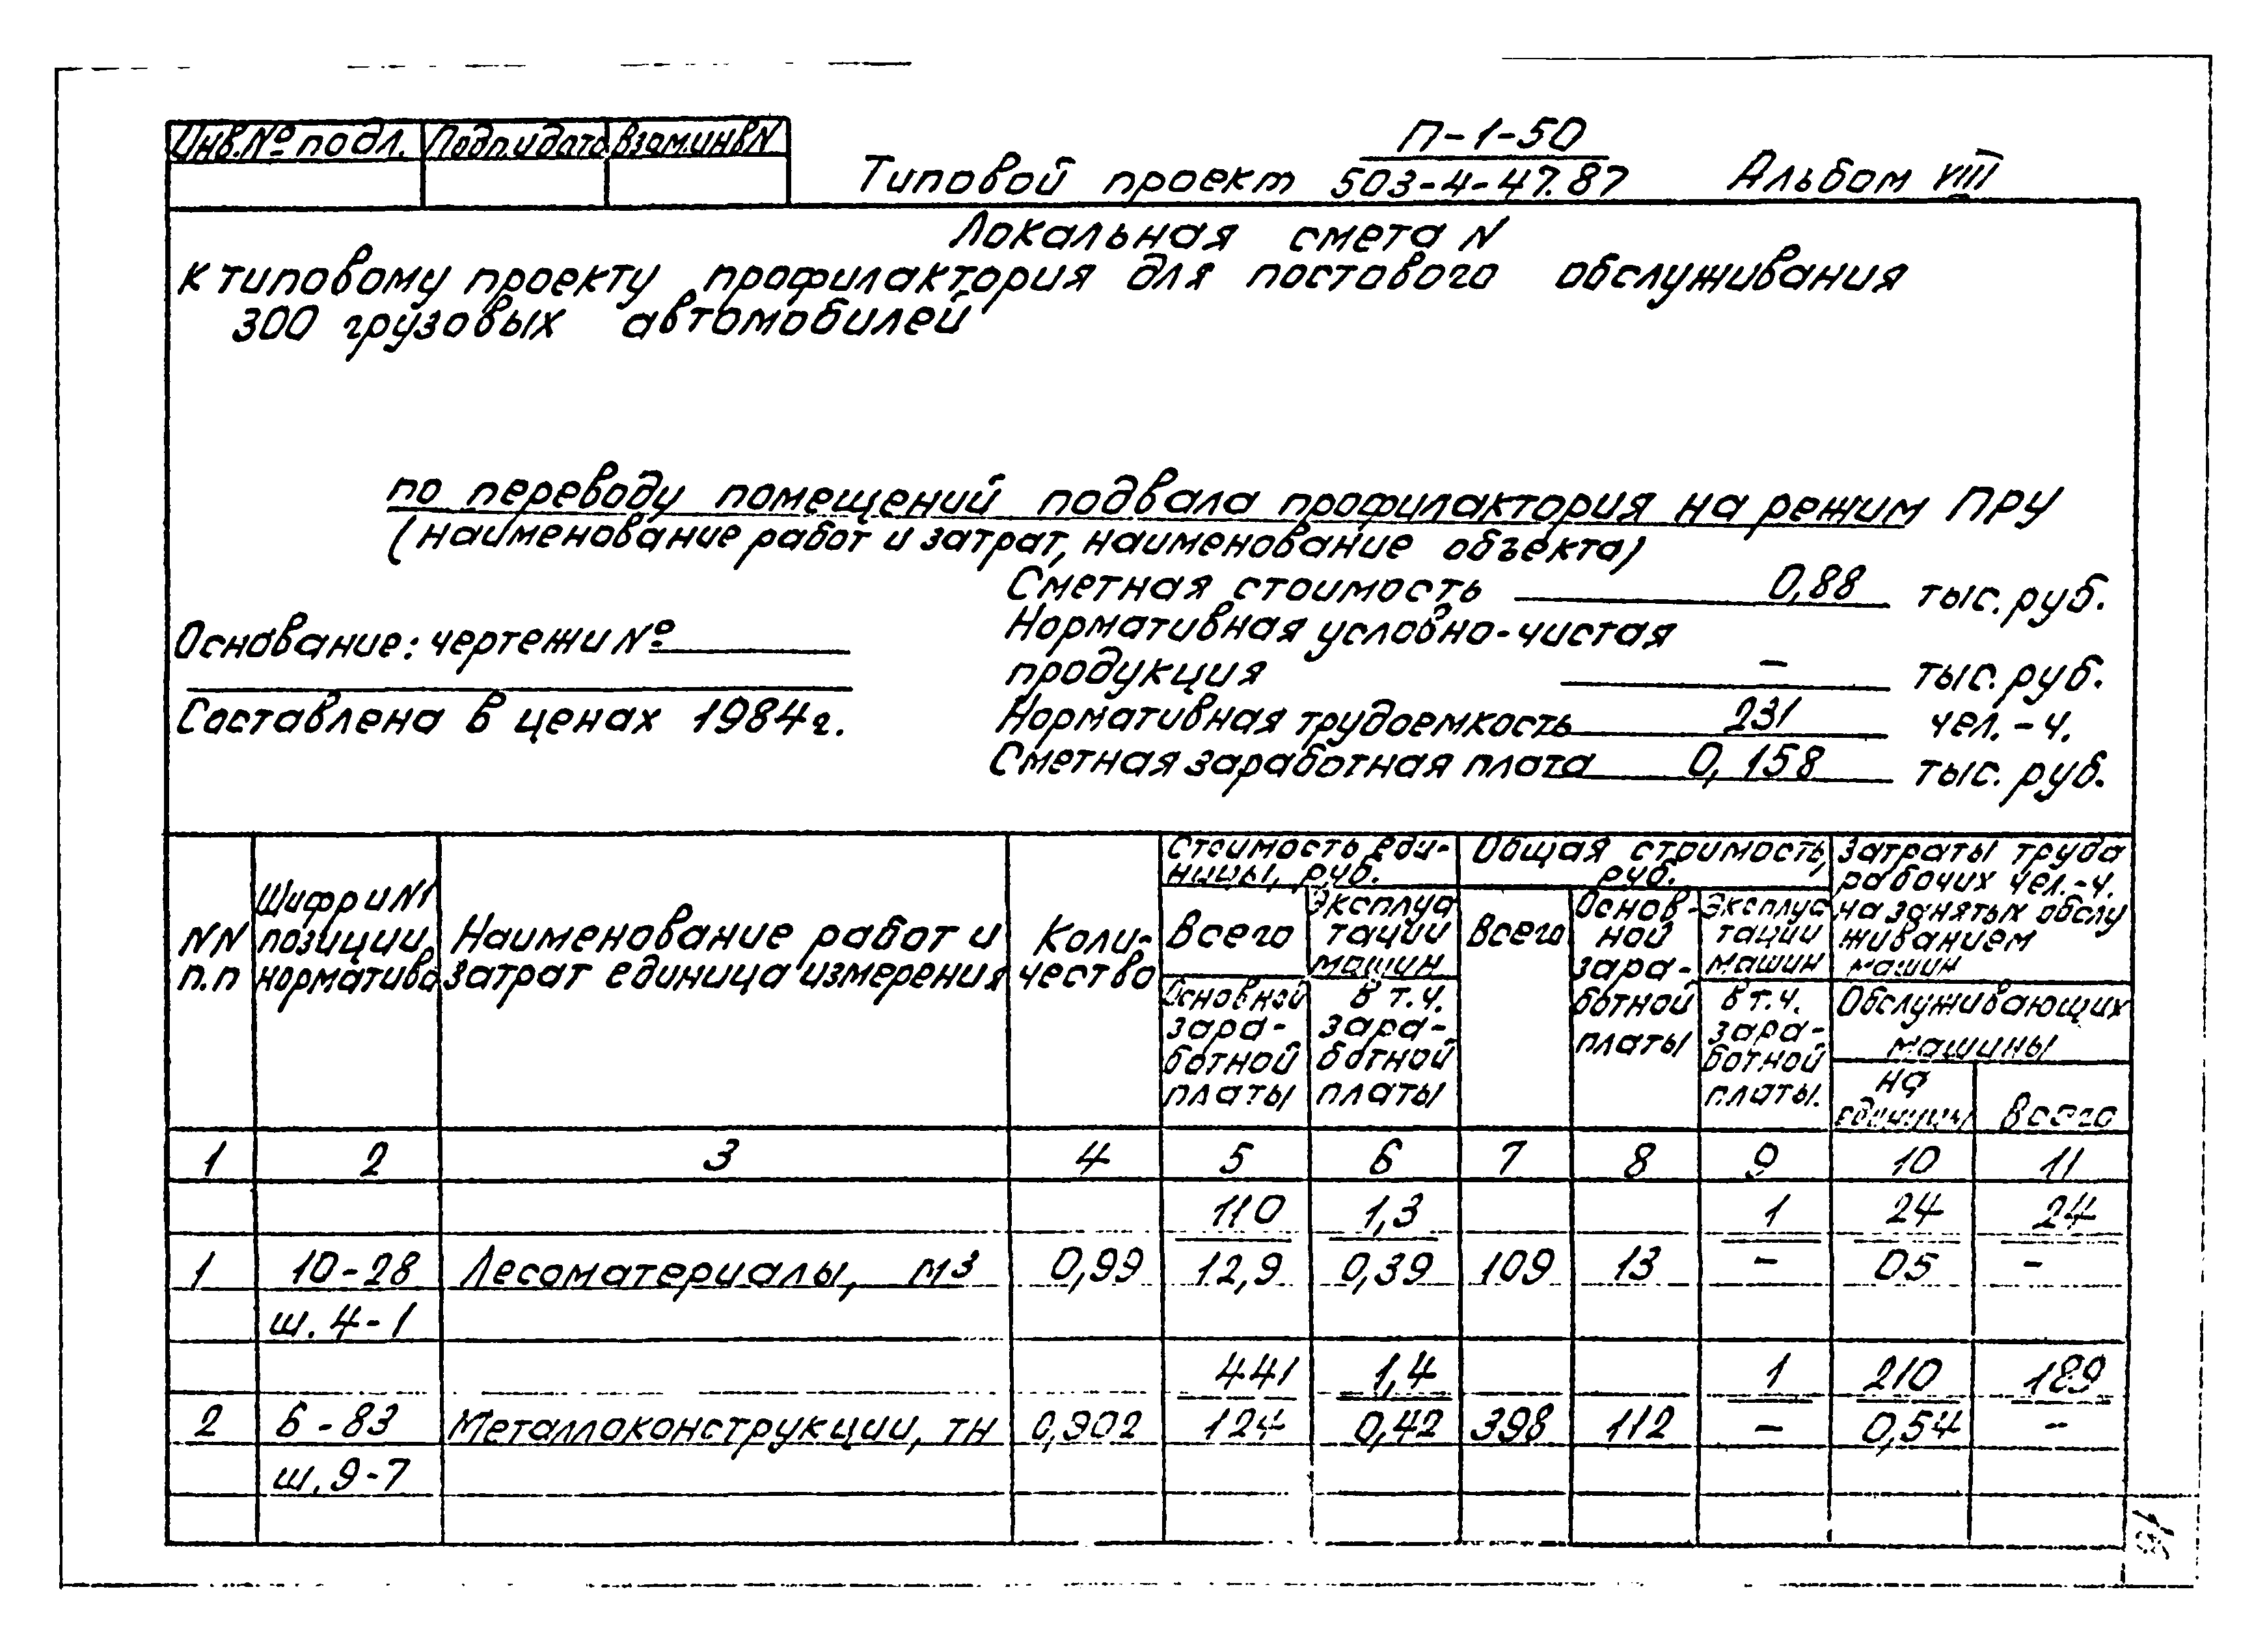 Инв.№ подл. Подп.и дата Взам.инв N
П-1-50
Типовой проект 503-4-47.87 Альбом VIII
Локальная смета N
к типовому проекту профилактория для постового обслуживания
300 грузовых автомобилей
по переводу помещений подвала профилактория на режим ПРУ
(наименование работ и затрат, наименование объекта)
Сметная стоимость 0,88 тыс. руб.
Основание: чертежи №
Нормативная условно-чистая
продукция — тыс. руб.
Составлена в ценах 1984г.
Нормативная трудоемкость 231 чел.-ч.
Сметная заработная плата 0,158 тыс. руб.
NN
п.п
Шифр и N
позиции
норматива
Наименование работ и
затрат единица измерения
Коли-
чество
Стоимость еди-
ницы, руб.
Всего
Основной
зара-
ботной
платы
Эксплуа
тации
машин
в т.ч.
зара-
ботной
платы
Общая стоимость,
руб.
Всего
Основ-
ной
зара-
ботной
платы
Эксплуа
тации
машин
в т.ч.
зара-
ботной
платы.
Затраты труда
рабочих чел.-ч.
на занятых обслу
живанием
машин
Обслуживающих
машины
на
единицы
всего
1 2 3 4 5 6 7 8 9 10 11
110 1,3 1 24 24
1 10-28 Лесоматериалы, м3 0,99 12,9 0,39 109 13 — 05 -
ш. 4-1
441 1,4 1 210 189
2 6-83 Металлоконструкции, тн 0,902 124 0,42 398 112 — 0,54 -
ш. 9-7